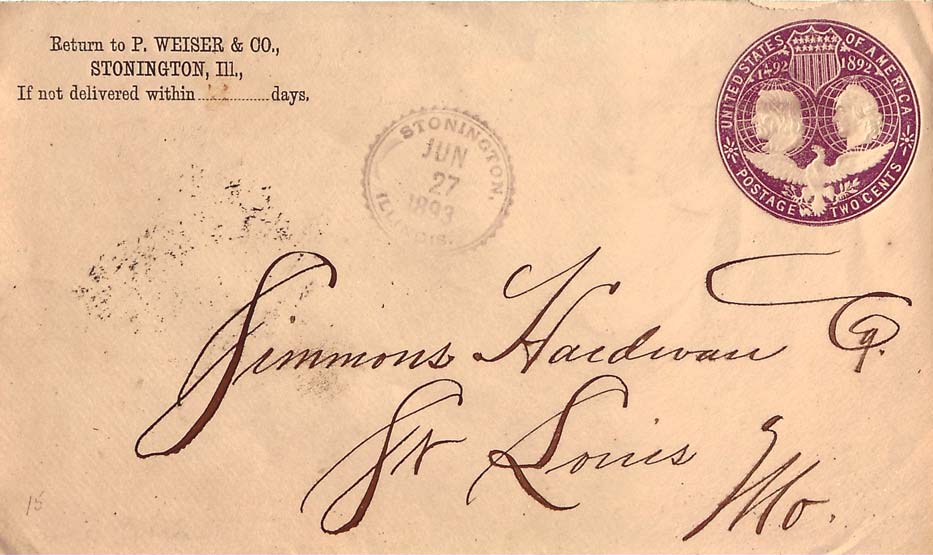 Return to P. WEISER & CO.,
STONINGTON, Ill.,
If not delivered within............days.
UNITED STATES OF AMERICA
1492 1892
POSTAGE TWO CENTS
STONINGTON,
JUN
27
1893
ILLINOIS.
Simmons Hardware Co.
St Louis
Mo.
15